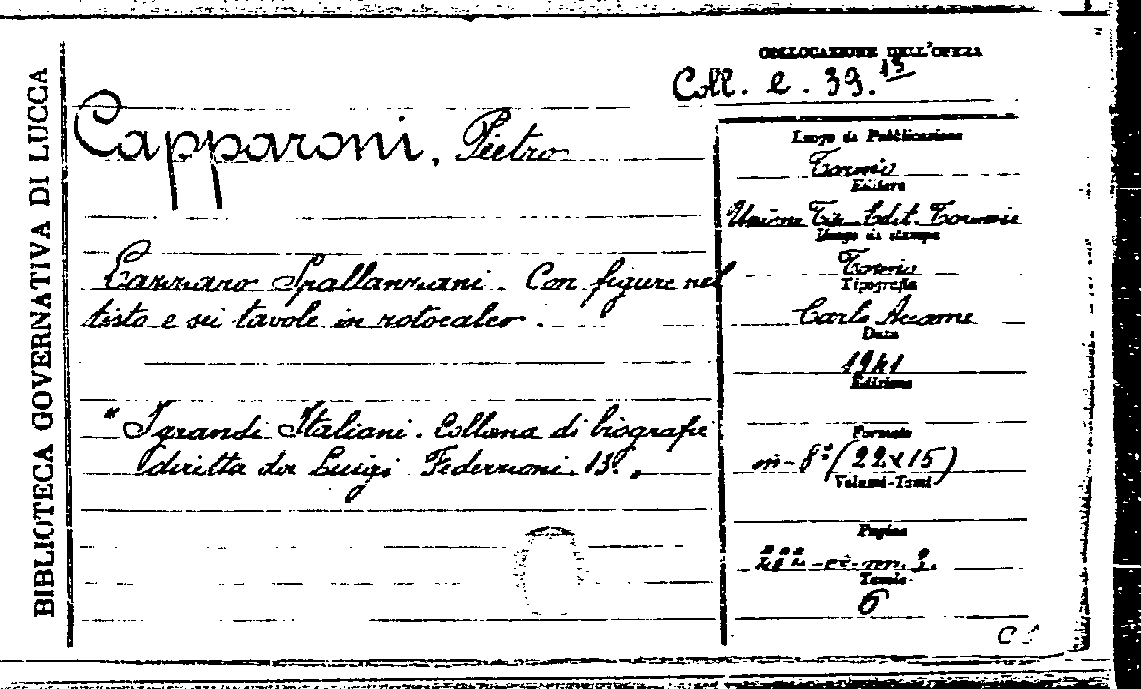 BIBLIOTECA GOVERNATIVA DI LUCCA
COLLOCAZIONE DELL'OPERA
Coll. e. 39. 13
Capparoni, Pietro
Lazzaro Spallanzani. Con figure nel
testo e sei tavole in rotocalco.
"I grandi Italiani. Collana di biografie
diretta da Luigi Federzoni. 13."
Luogo di Pubblicazione
Torino
Editore
Unione Tip. Edit. Torinese
Luogo di stampa
Torino
Tipografia
Carlo Accame
Data
1941
Edizione
Formato
in-8° (22x15)
Volumi-Tomi
Pagine
Tavole
6